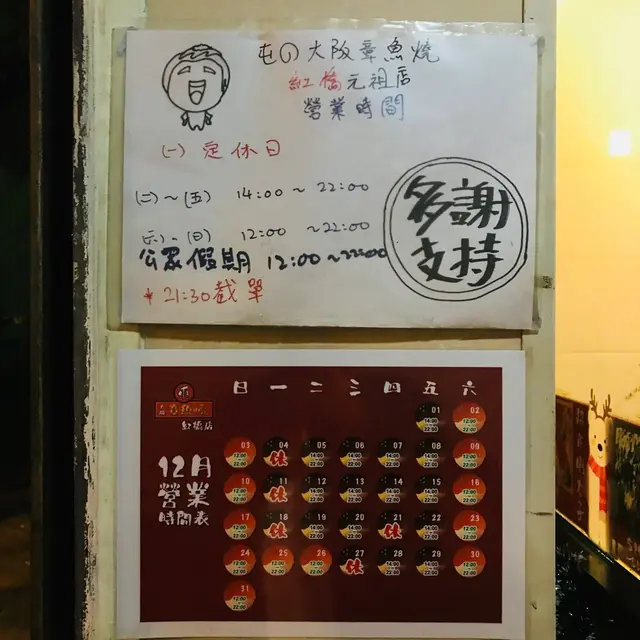 屯の大阪章魚燒
紅橋元祖店
營業時間
(一) 定休日
(二)～(五) 14:00 ~ 22:00
(六)-(日) 12:00 ~22:00
公眾假期 12:00~22:00
* 21:30截單
多謝
支持
日 一 二 三 四 五 六
紅橋店
12月
營業
時間表
01 02
14:00 22:00 12:00 22:00
03 04 05 06 07 08 09
12:00 22:00 休 14:00 22:00 14:00 22:00 14:00 22:00 14:00 22:00 12:00 22:00
10 11 12 13 14 15 16
12:00 22:00 休 14:00 22:00 14:00 22:00 14:00 22:00 14:00 22:00 12:00 22:00
17 18 19 20 21 22 23
12:00 22:00 休 14:00 22:00 14:00 22:00 休 14:00 22:00 12:00 22:00
24 25 26 27 28 29 30
12:00 22:00 12:00 22:00 12:00 22:00 休 14:00 22:00 14:00 22:00 12:00 22:00
31
12:00 22:00